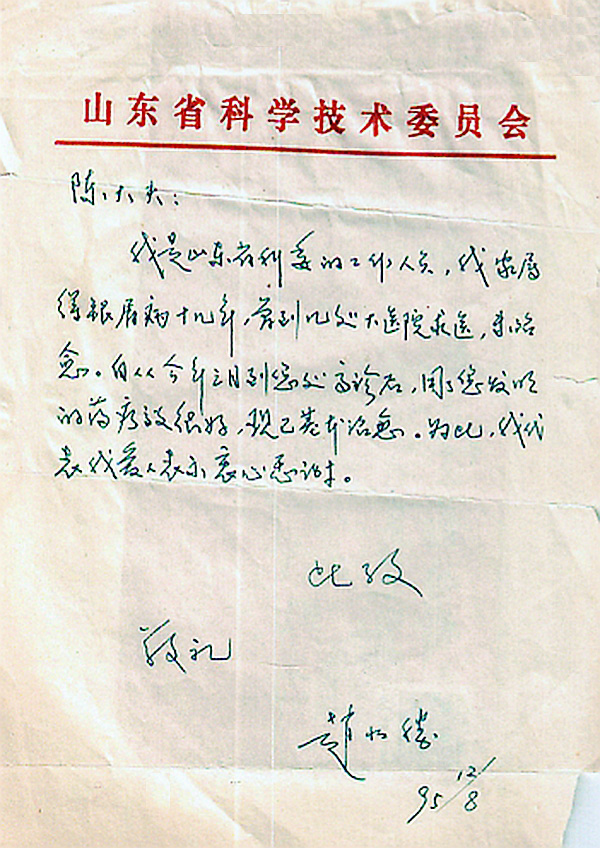 山东省科学技术委员会
陈大夫：
我是山东省科委的工作人员，我家属
得银屑病十几年，曾到几处大医院求医，未治
愈。自从今年三月到您处就诊后，用了您发明
的药疗效很好，现已基本治愈。为此，我代
表我爱人表示衷心感谢。
此致
敬礼
赵 胜
95 12/8